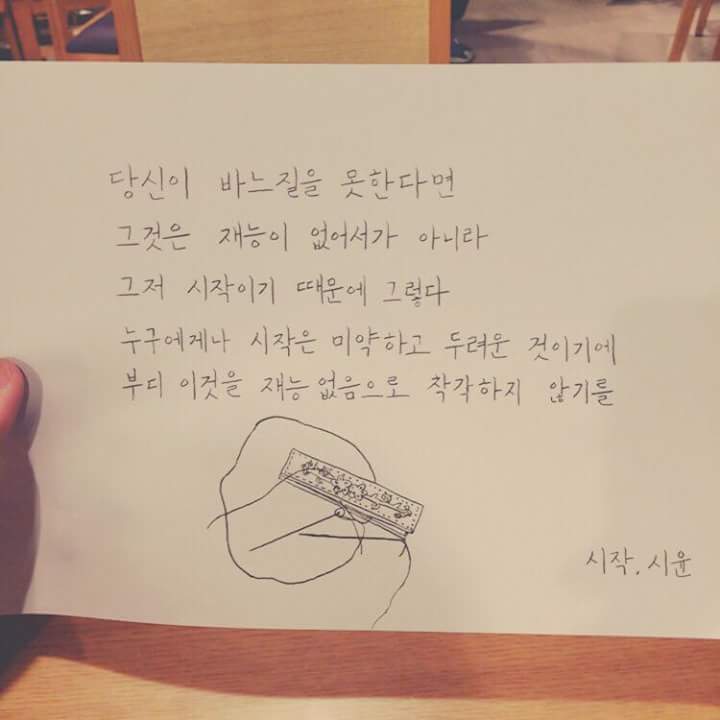 당신이 바느질을 못한다면
그것은 재능이 없어서가 아니라
그저 시작이기 때문에 그렇다
누구에게나 시작은 미약하고 두려운 것이기에
부디 이것을 재능 없음으로 착각하지 않기를
시작. 시윤